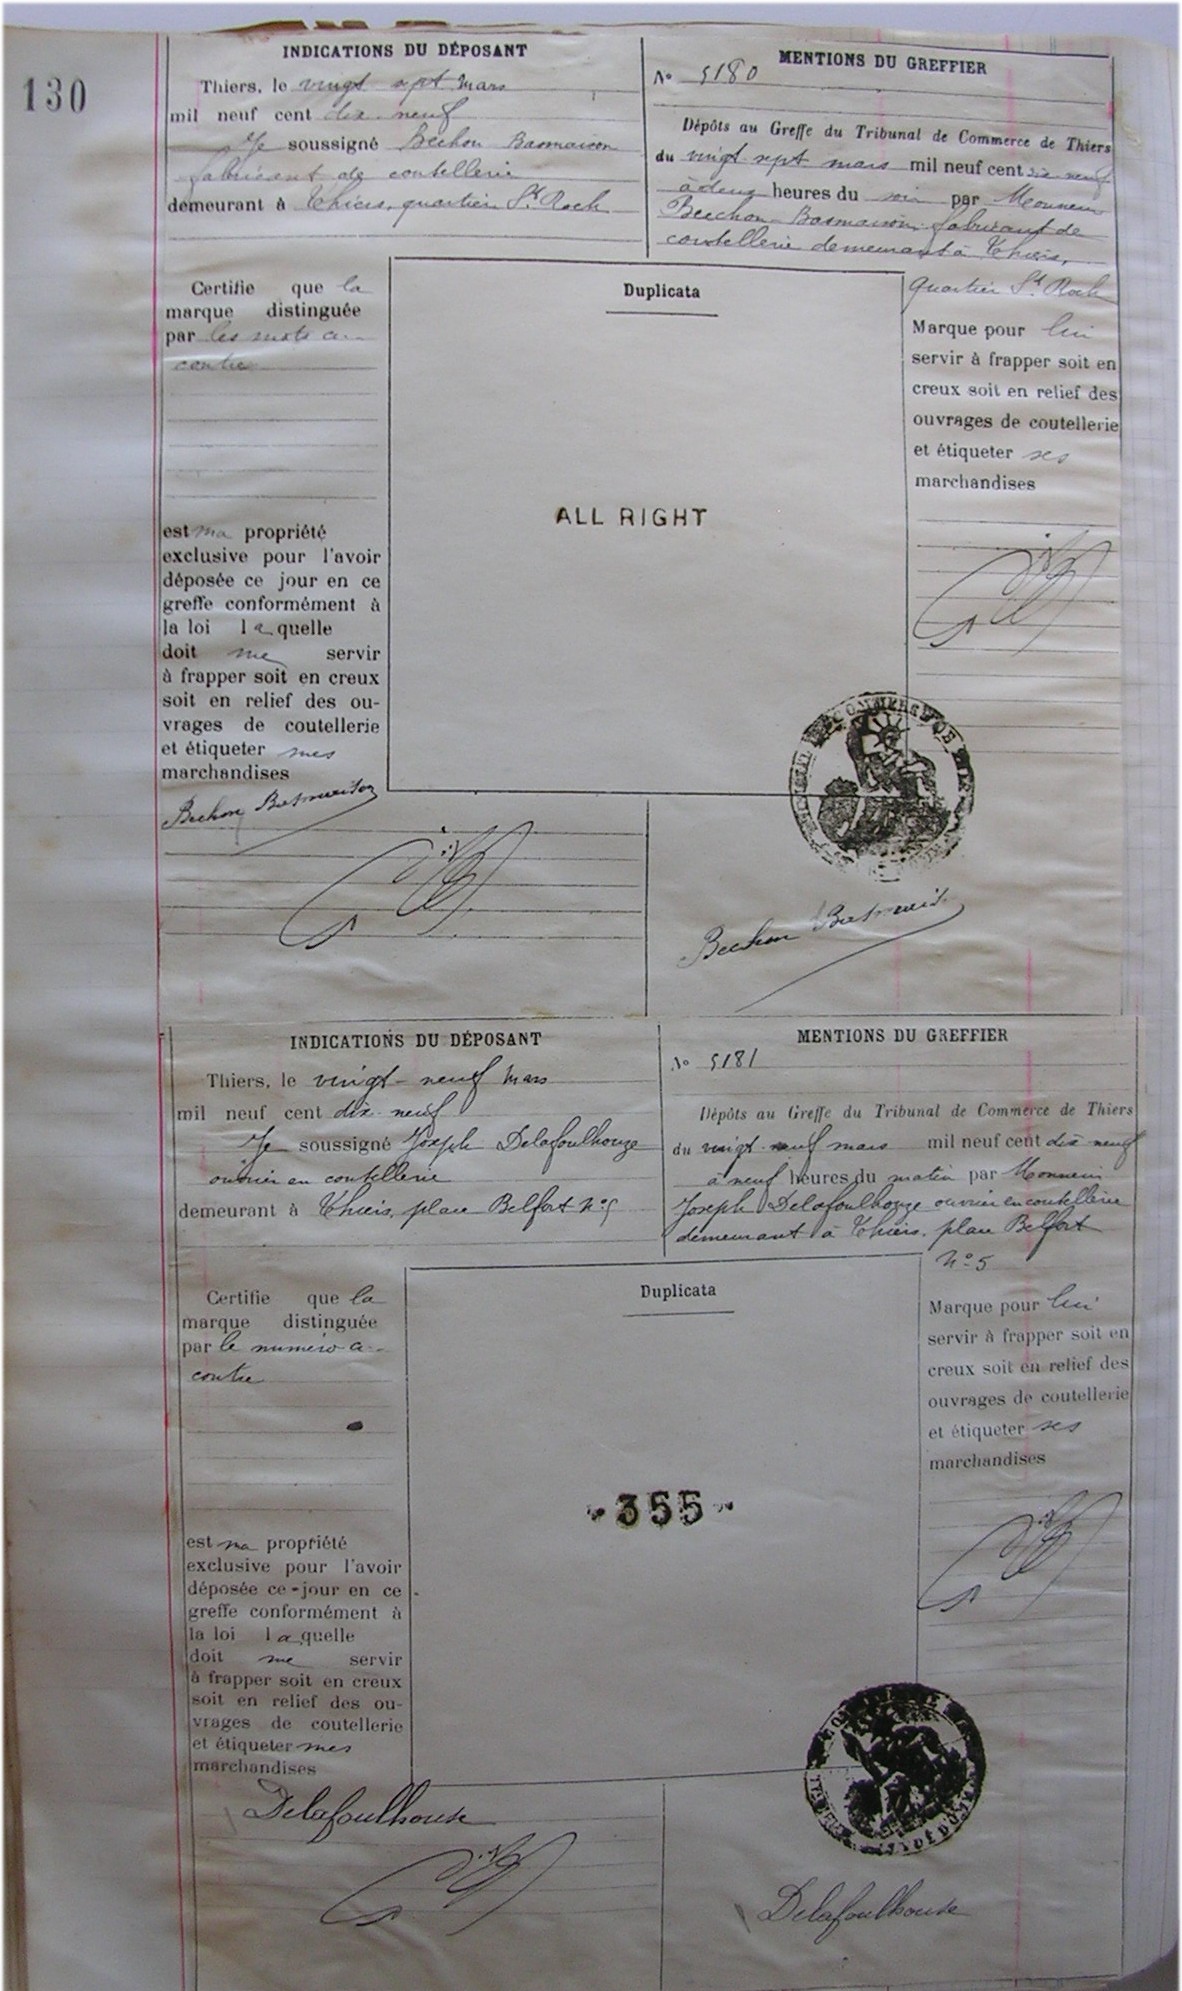 130
INDICATIONS DU DÉPOSANT
Thiers, le vingt sept mars
mil neuf cent dix-neuf
Je soussigné Bechon Basmaison
fabricant de coutellerie
demeurant à Thiers, quartier St Roch
MENTIONS DU GREFFIER
No 5180
Dépôts au Greffe du Tribunal de Commerce de Thiers
du vingt sept mars mil neuf cent dix neuf
à deux heures du soir par Monsieur
Beechon-Basmaison fabricant de
coutellerie demeurant à Thiers,
quartier St Roch
Certifie que la
marque distinguée
par les mots ci-
contre
est ma propriété
exclusive pour l'avoir
déposée ce jour en ce
greffe conformément à
la loi laquelle
doit me servir
à frapper soit en creux
soit en relief des ou-
vrages de coutellerie
et étiqueter mes
marchandises
Bechon Basmaison
Duplicata
ALL RIGHT
Marque pour lui
servir à frapper soit en
creux soit en relief des
ouvrages de coutellerie
et étiqueter ses
marchandises
Bechon Basmais
INDICATIONS DU DÉPOSANT
Thiers, le vingt-neuf mars
mil neuf cent dix-neuf
Je soussigné Joseph Delafoulhouze
ouvrier en coutellerie
demeurant à Thiers, place Belfort No 5
MENTIONS DU GREFFIER
No 5181
Dépôts au Greffe du Tribunal de Commerce de Thiers
du vingt-neuf mars mil neuf cent dix neuf
à neuf heures du matin par Monsieur
Joseph Delafoulhouze ouvrier en coutellerie
demeurant à Thiers, place Belfort
No 5
Certifie que la
marque distinguée
par le numéro ci-
contre
est ma propriété
exclusive pour l'avoir
déposée ce jour en ce
greffe conformément à
la loi laquelle
doit me servir
à frapper soit en creux
soit en relief des ou-
vrages de coutellerie
et étiqueter mes
marchandises
Delafoulhouse
Duplicata
355
Marque pour lui
servir à frapper soit en
creux soit en relief des
ouvrages de coutellerie
et étiqueter ses
marchandises
Delafoulhouse